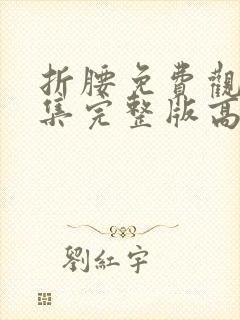 折腰免費觀
集完整版高
劉紅宇